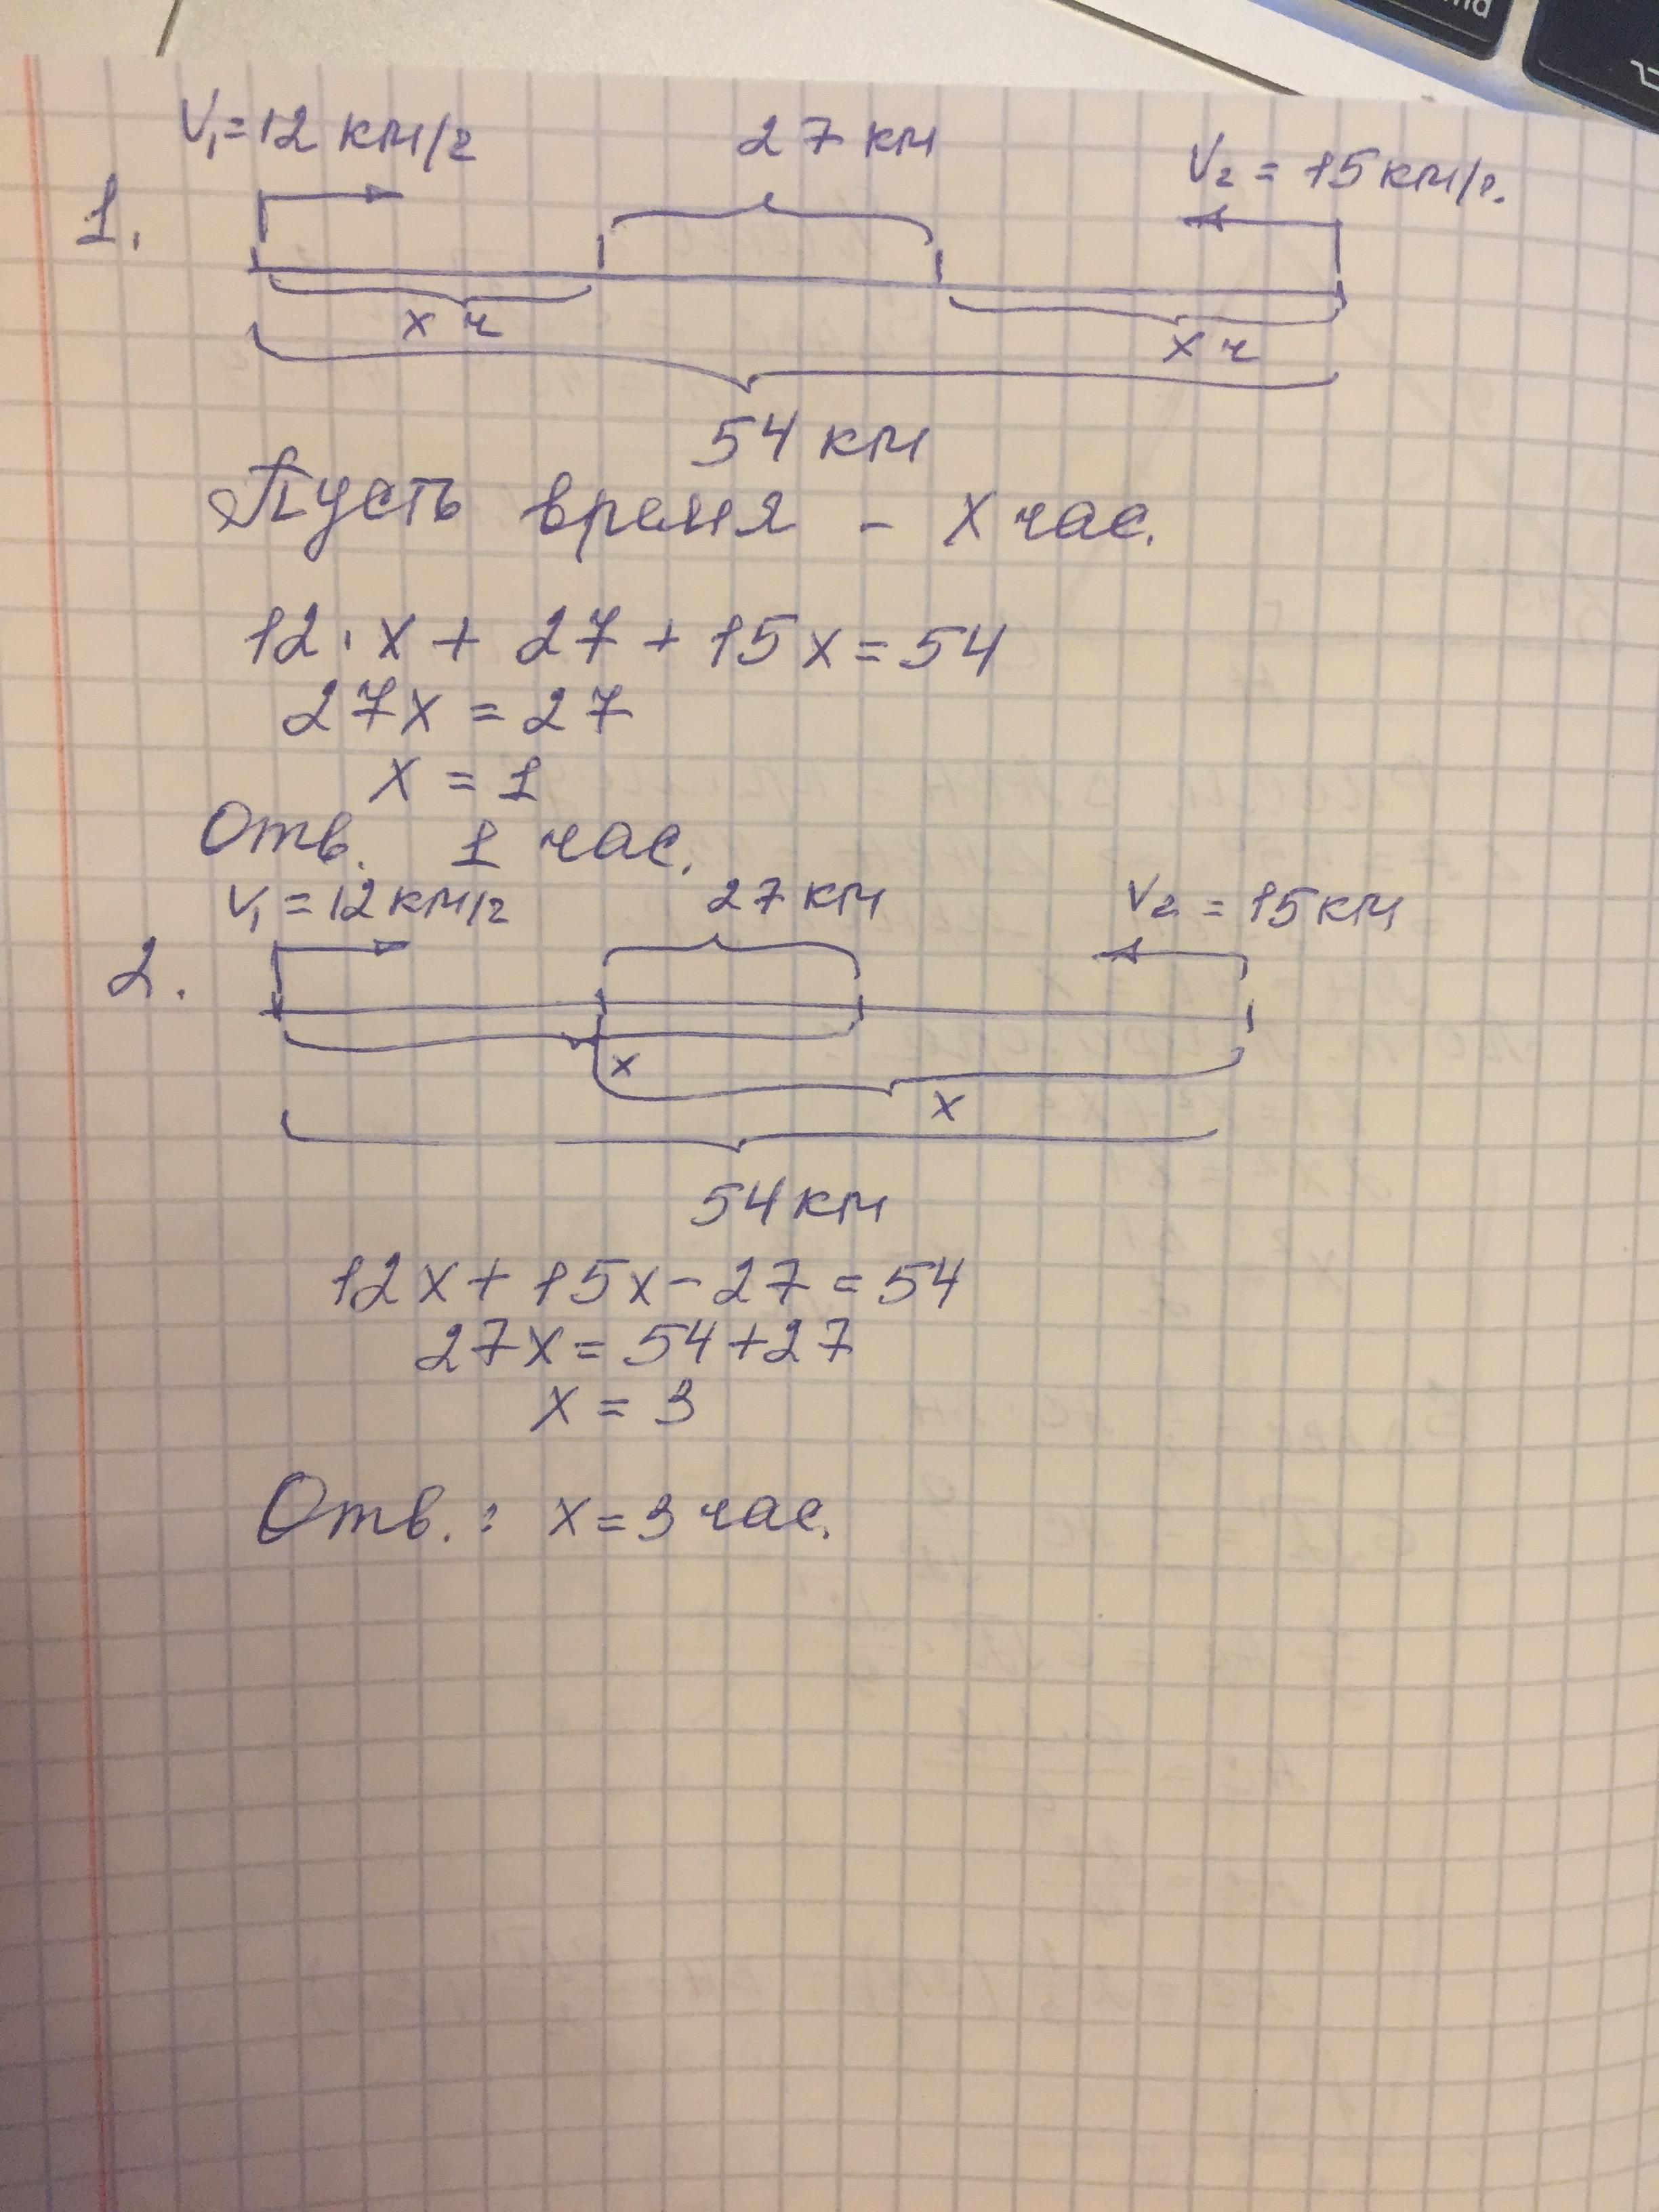 V₁=12 км/г
27 км
V₂ = 15 км/г.
1.
х ч
х ч
54 км
Пусть время – х час.
12·х + 27 + 15х = 54
27х = 27
х = 1
Отв. 1 час.
V₁ = 12 км/г
27 км
V₂ = 15 км
2.
х
х
54 км
12х + 15х – 27 = 54
27х = 54 + 27
х = 3
Отв.: х = 3 час.